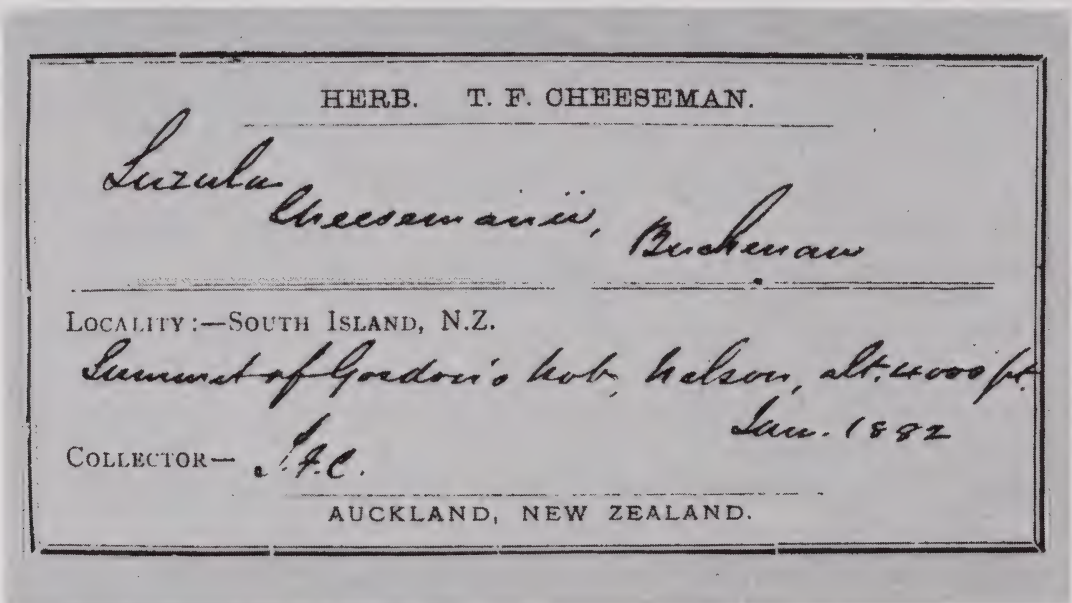 HERB. T. F. CHEESEMAN.
Luzula
Cheesemanii, Buchanan
LOCALITY:—SOUTH ISLAND, N.Z.
Summit of Gordon's Nob, Nelson, alt. 4000 ft.
Jan. 1882
COLLECTOR— T.F.C.
AUCKLAND, NEW ZEALAND.